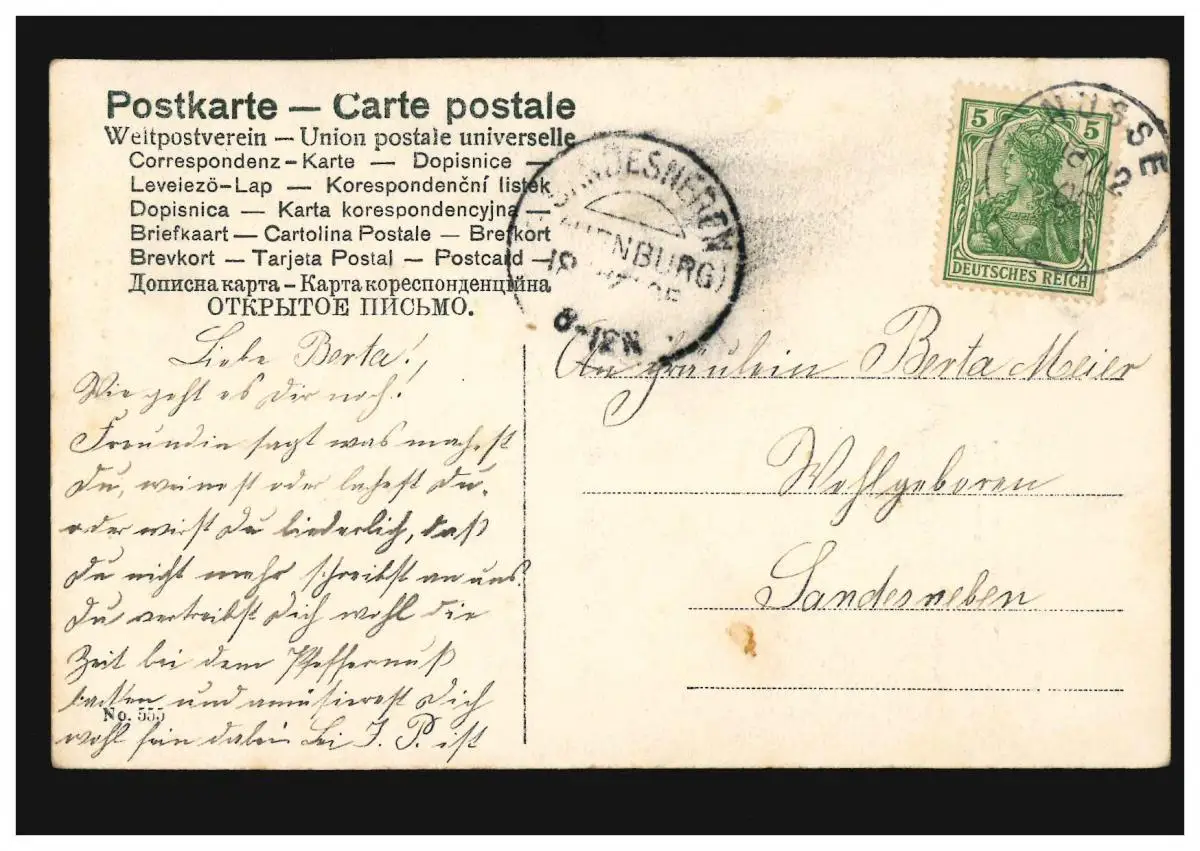 Postkarte — Carte postale
Weltpostverein — Union postale universelle
Correspondenz-Karte — Dopisnice —
Levelező-Lap — Korespondenční listek
Dopisnica — Karta korespondencyjna —
Briefkaart — Cartolina Postale — Brefkort
Brevkort — Tarjeta Postal — Postcard —
Дописна карта - Карта кореспонденцıйна
ОТКРЫТОЕ ПИСЬМО.
NUSSE
5 5
DEUTSCHES REICH
8-12N
Liebe Berta!,
Wie geht es Dir noch!
Freundin sagt was machst
Du, weinest oder lachest Du,
oder wirst Du liederlich, daß
Du nicht mehr schreibst an uns.
Du vertreibst Dich wohl die
Zeit bei dem Pfeffernuß
backen und amüsierest Dich
No. 555
wohl fein dabei. Bei J. P. ist
An Fräulein Berta Meier
Wohlgeboren
Sandesneben